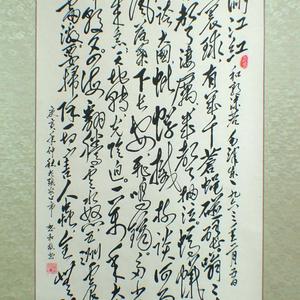 满江红 和郭沫若 毛泽东 一九六三年一月九日
寰球有几个苍蝇碰壁嗡嗡
叫几声凄厉几声抽泣蚂
夸大国蚍蜉撼树谈何易
风落叶下长安飞鸣镝多少
来急天地转光阴迫一万年太
朝夕四海翻腾云水怒五洲震
雷激要扫除一切害人虫全无
庚寅年仲秋于张家口市